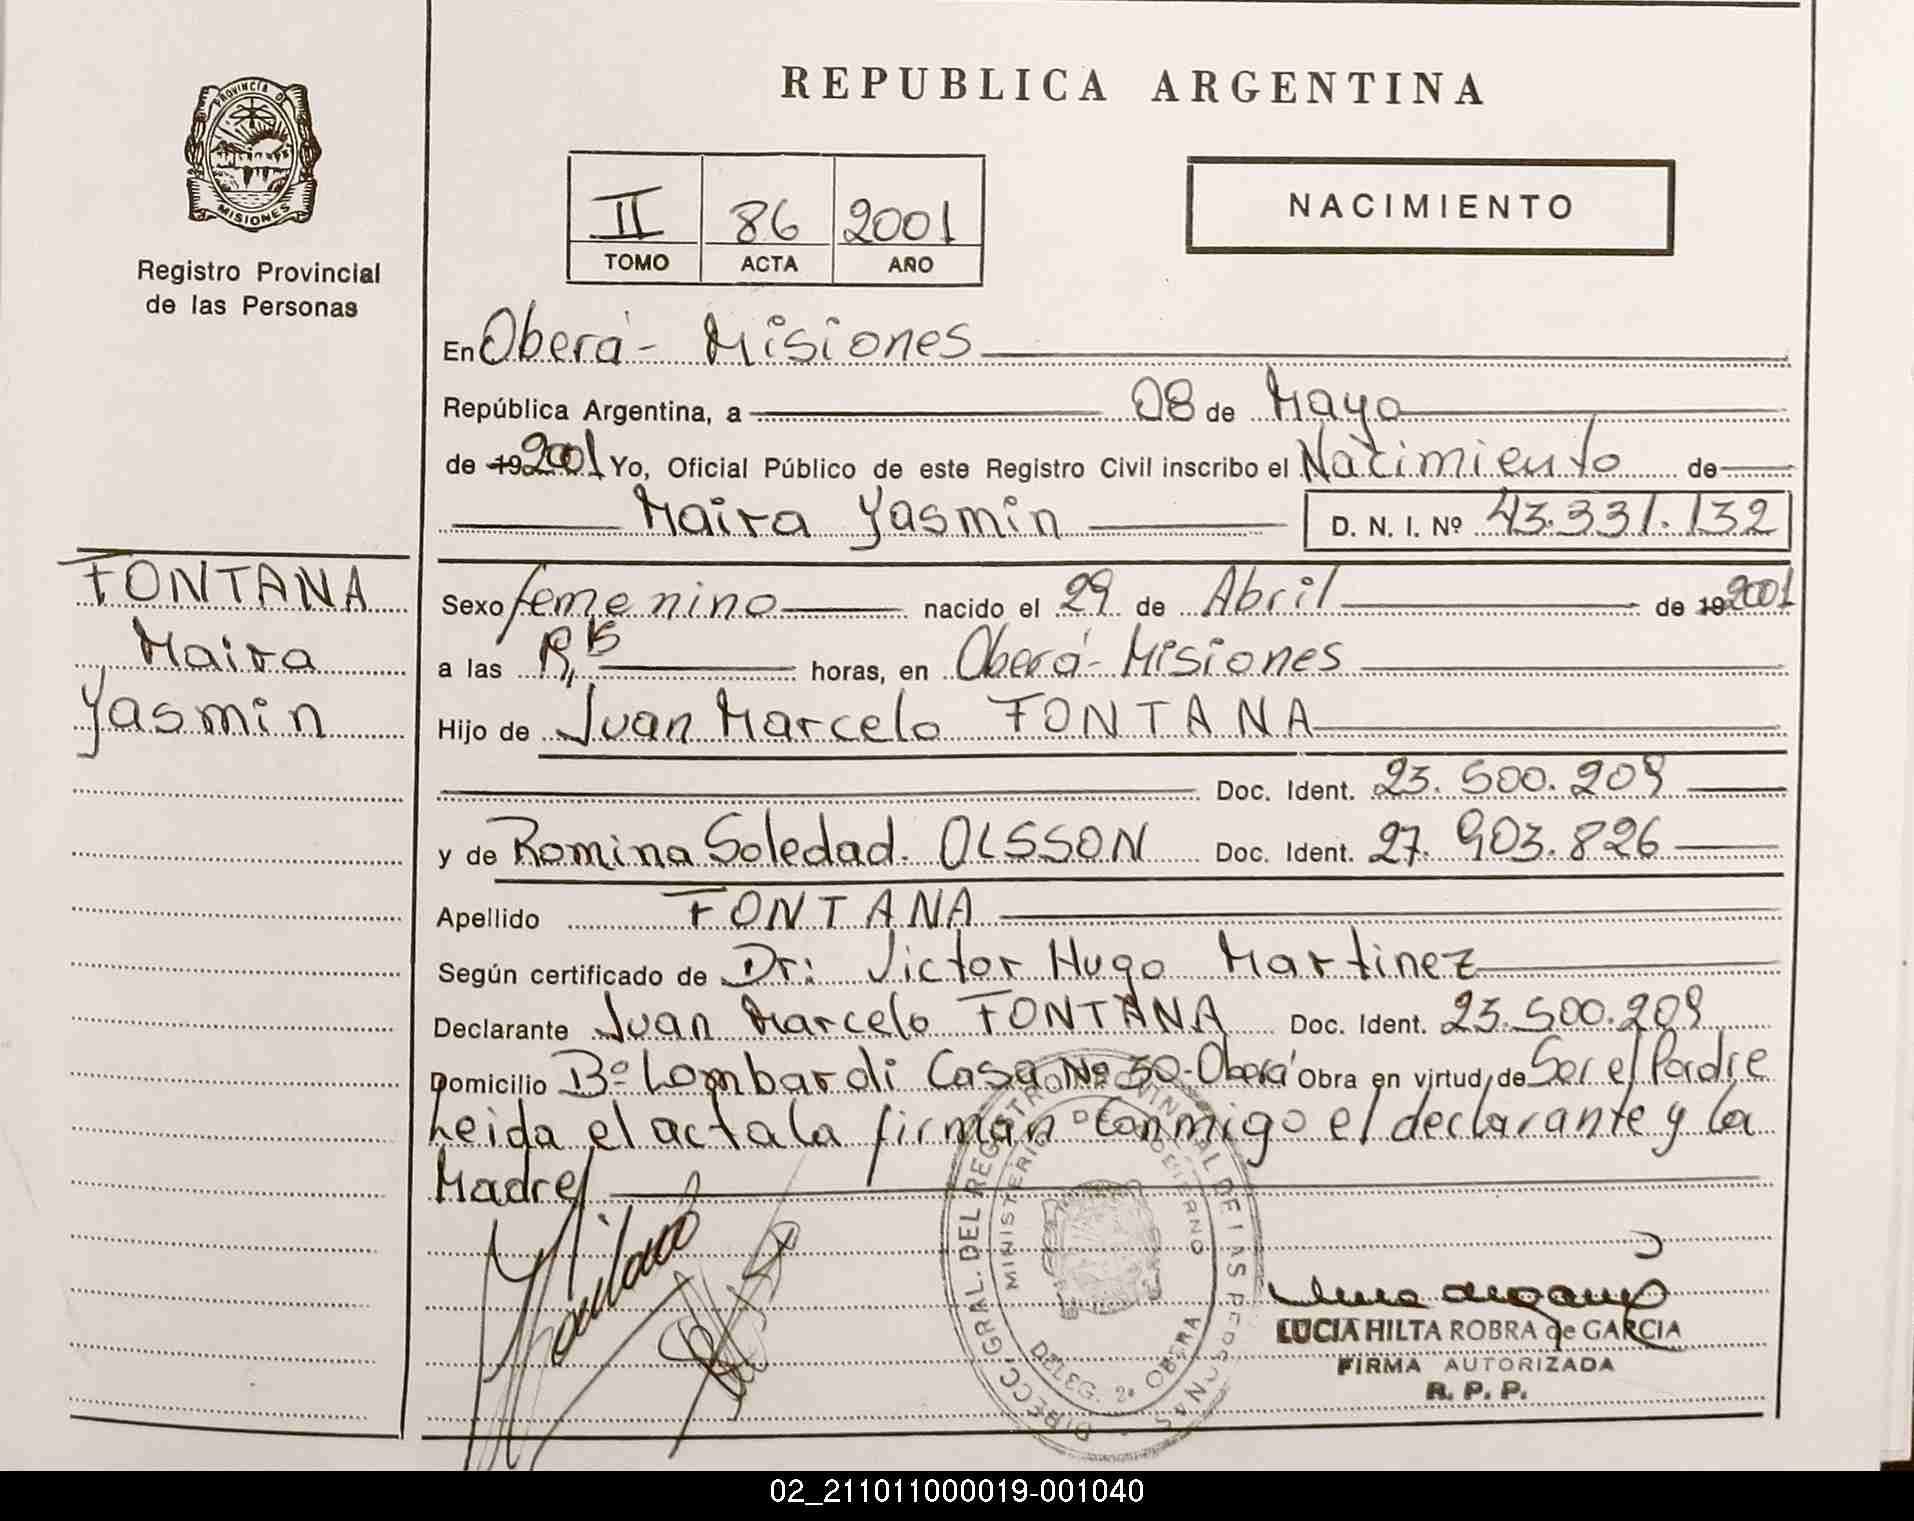 PROVINCIA DE
MISIONES
Registro Provincial
de las Personas
FONTANA
Maira
Yasmin
REPUBLICA ARGENTINA
II 86 2001
TOMO ACTA AÑO
NACIMIENTO
En Oberá - Misiones
República Argentina, a 08 de Mayo
de 19 2001 Yo, Oficial Público de este Registro Civil inscribo el Nacimiento de
Maira Yasmin D. N. I. Nº 43.331.132
Sexo femenino nacido el 29 de Abril de 19 2001
a las horas, en Oberá - Misiones
Hijo de Juan Marcelo FONTANA
Doc. Ident. 23.500.209
y de Romina Soledad. OLSSON Doc. Ident. 27.903.826
Apellido FONTANA
Según certificado de Dr: Victor Hugo Martinez
Declarante Juan Marcelo FONTANA Doc. Ident. 23.500.209
Domicilio Bº Lombardi Casa Nº 30 - Oberá Obra en virtud, de Ser el Padre
Leida el acta la firman Conmigo el declarante y la
Madre
DIRECC. GRAL. DEL REGISTRO PROVINCIAL DE LAS PERSONAS
MINISTERIO DE GOBIERNO
DELEG. 2ª OBERA
LUCIA HILTA ROBRA de GARCIA
FIRMA AUTORIZADA
R. P. P.
02_211011000019-001040